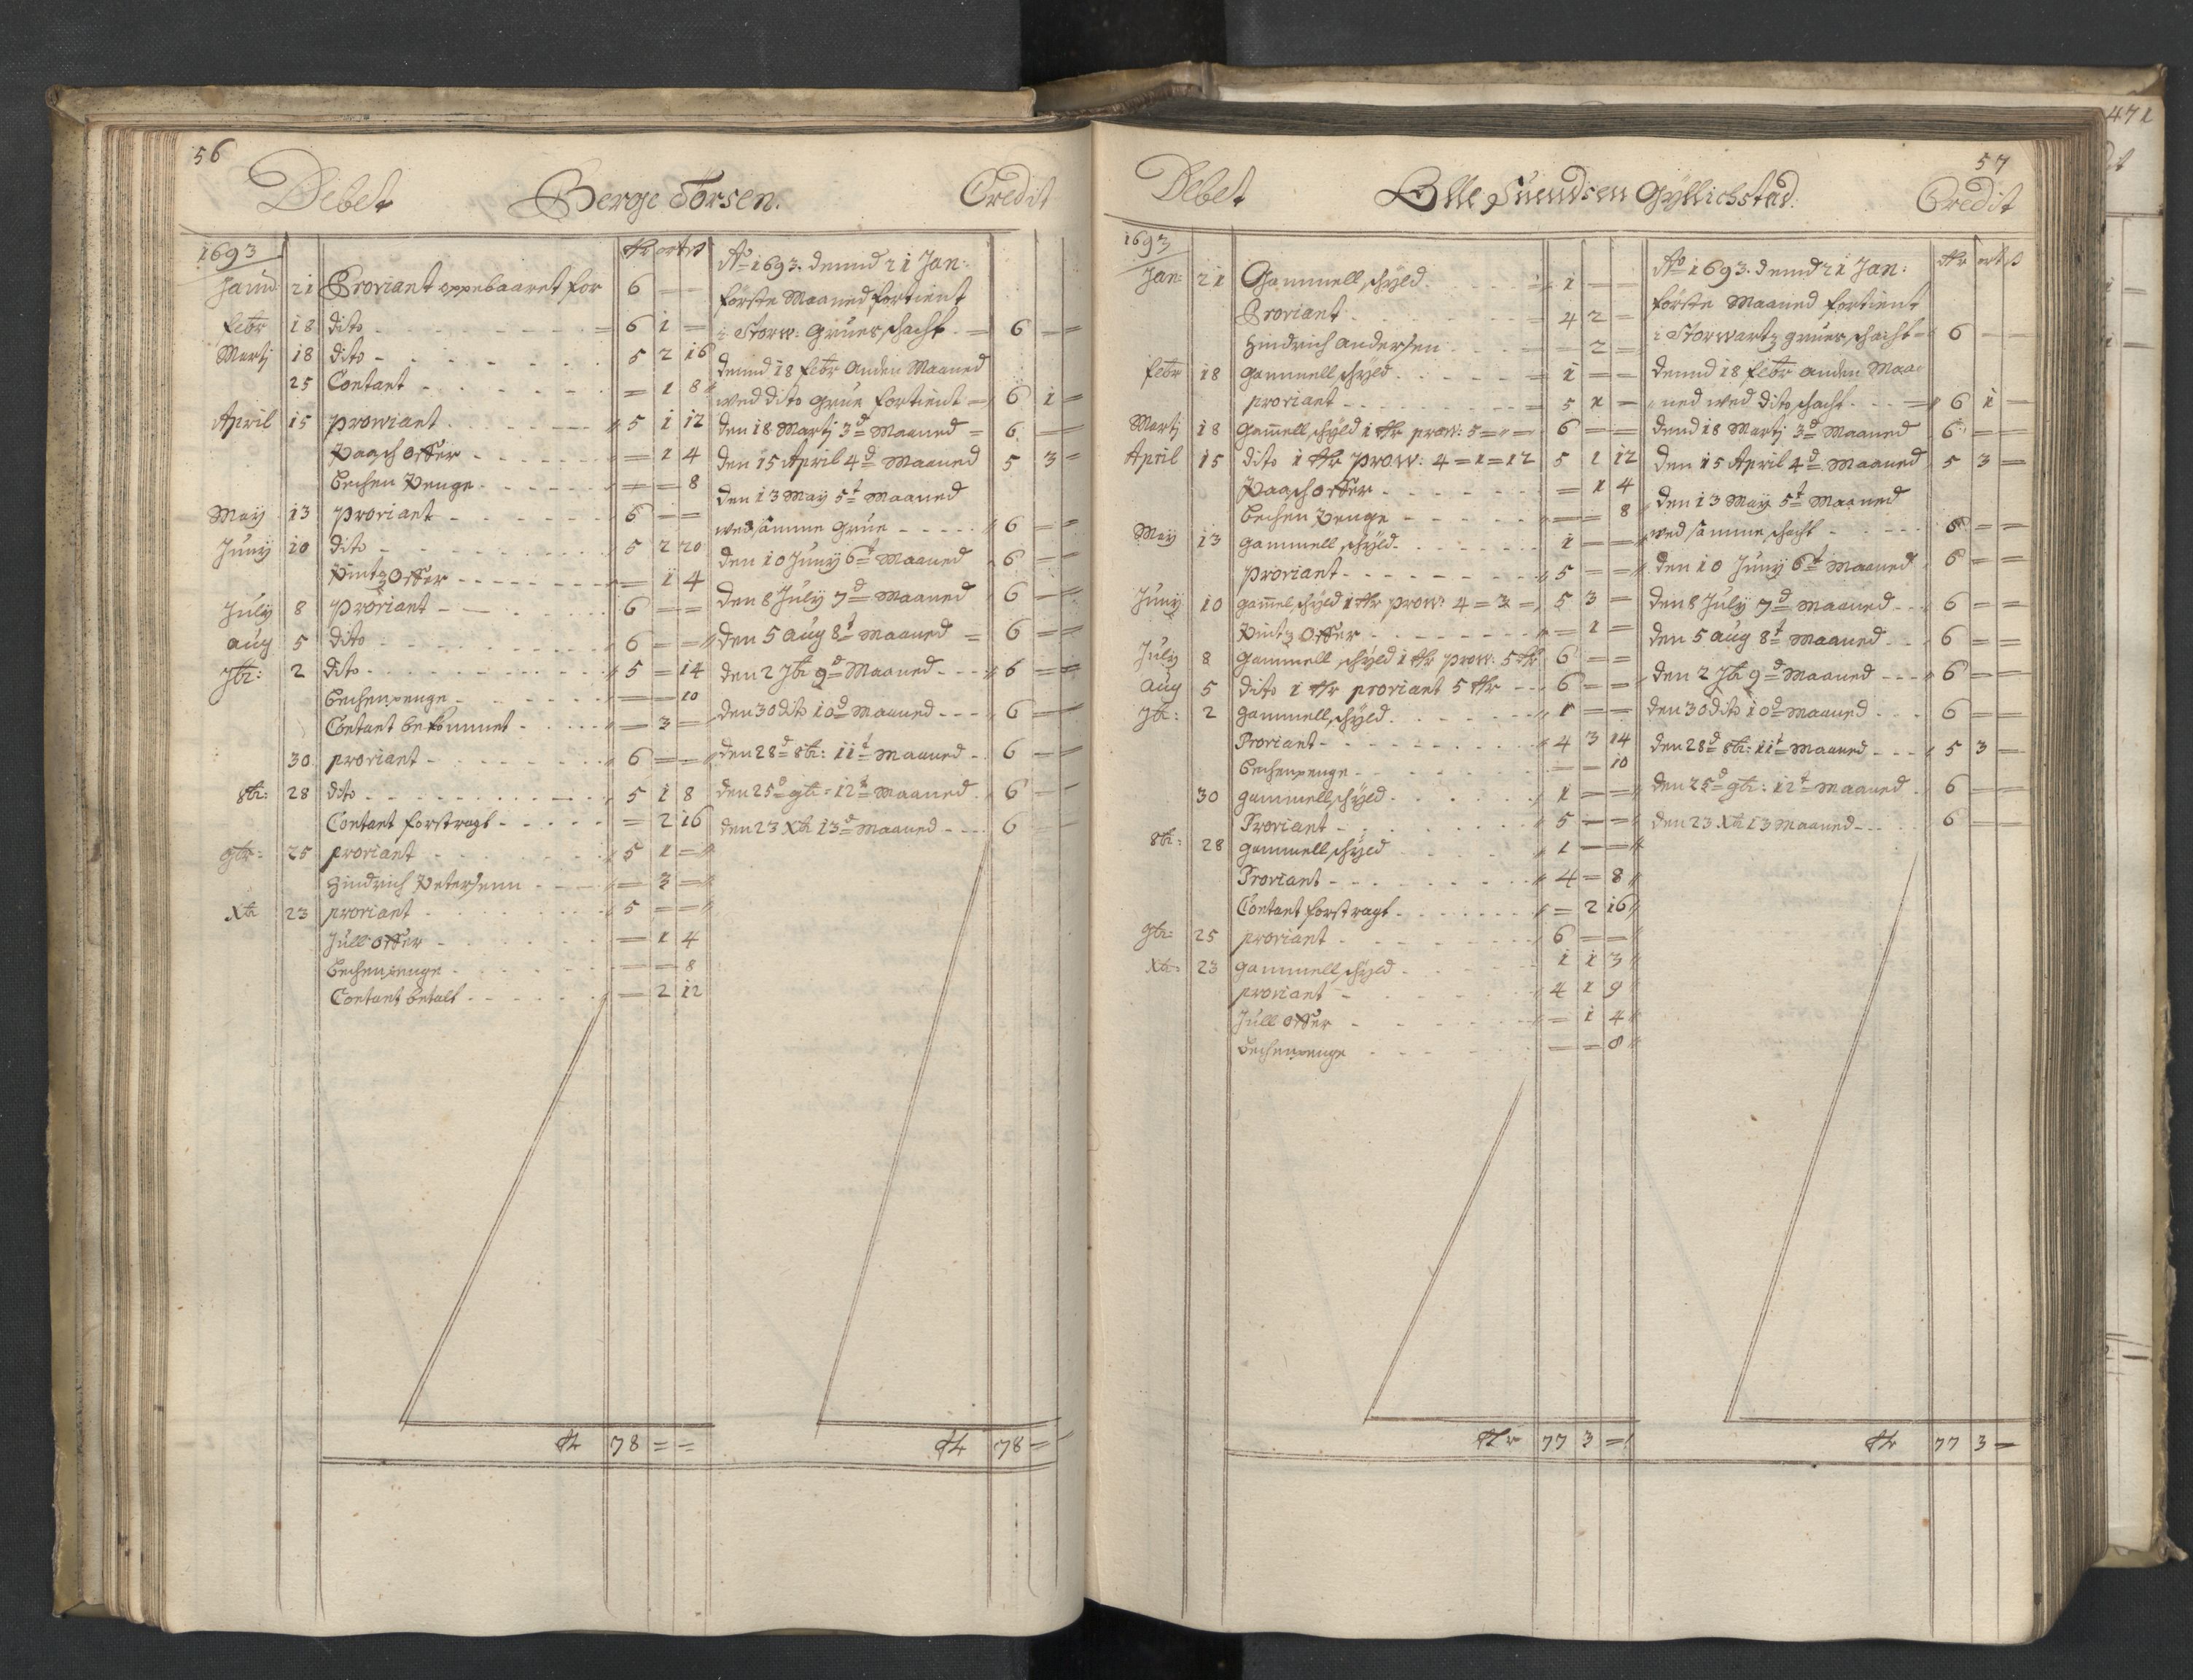 56
Debet Berge Torsen. Credit
1693 Rdr ort ß
Janu 21 Proviant oppebaaret for 6 — —
Febr 18 dito 6 1 =
Martj 18 dito 5 2 16
25 Contant = 1 8
April 15 prowiant 5 1 12
Paasch offer = 1 4
bechen Penge = — 8
May 13 proviant 6 — —
Juny 10 dito 5 2 20
Pintz Offer — 1 4
July 8 proviant 6 — —
aug 5 dito 6 — —
7br: 2 dito 5 = 14
bechenpenge — — 10
Contant bekommet — 3 —
30 proviant 6 — —
8br: 28 dito 5 1 8
Contant forstragt = 2 16
9br: 25 proviant 5 1 =
Hindrich Petersenn — 3 =
Xbr 23 proviant 5 — —
Jull offer — 1 4
bechenpenge — — 8
Contant betalt — 2 12
Rdr 78 = =
Ao 1693. dennd 21 Jan:
förste Maaned fortient
i Storw: Grues schacht 6 — =
dennd 18 febr anden Maaned
wed dito grue fortient 6 1 =
den 18 Martj 3d Maaned 6 — —
den 15 April 4d Maaned 5 3 =
den 13 May 5t Maaned
wed samme Grue 6 — =
den 10 Juny 6t Maaned 6 — =
den 8 July 7d Maaned 6 — =
den 5 aug 8t Maaned 6 — =
den 2 7br 9d Maaned 6 — =
den 30 dito 10d Maaned 6 — —
den 28d 8br: 11t Maaned 6 — —
den 25d 9br: 12t Maaned 6 — —
den 23 Xbr 13d Maaned 6 — —
Rdr 78 =
57
Debet Olle Suendsen Gyllichstad: Credit
1693
Jan: 21 Gammell schyld 1 — —
Proviant 4 2 =
Hindrich Andersen — 2 =
febr 18 gammell schyld 1 — =
proviant 5 1 =
Martj 18 Gammell schyld 1 Rdr prow: 5 = = 6 — =
April 15 dito 1 Rdr prow: 4 = 1 = 12 5 1 12
Paasch offer = 1 4
bechen Penge — — 8
May 13 gammell schyld 1 — —
proviant 5 — —
Juny 10 gammel schyld 1 Rdr prow: 4 = 3 = 5 3 =
Pintz Offer = 1 =
July 8 gammell schyld 1 Rdr prow: 5 Rdr 6 — =
aug 5 dito 1 Rdr proviant 5 Rdr 6 — =
7br: 2 gammell schyld 1 — —
Proviant 4 3 14
bechenpenge — — 10
30 gammell schyld 1 — —
Proviant 5 — —
8br: 28 gammell schyld 1 — =
Proviant 4 = 8
Contant forstragt = 2 16
9br: 25 proviant 6 — —
Xbr: 23 gammell schyld 1 1 3
proviant 4 1 9
Jull offer = 1 4
bechenpenge — = 8
Rdr 77 3 =
Ao 1693. dennd 21 Jan: Rdr ort ß
förste Maaned fortient
i Storwartz grues schacht 6 — —
dennd 18 febr anden Maa
ned wed dito schacht 6 1 —
dend 18 Martj 3d Maaned 6 — =
den 15 April 4d Maaned 5 3 =
den 13 May 5t Maaned
wed samme schacht 6 — =
den 10 Juny 6t Maaned 6 — =
den 8 July 7d Maaned 6 — =
den 5 aug 8t Maaned 6 — =
den 2 7br 9d Maaned 6 — —
den 30 dito 10d Maaned 6 — =
den 28d 8br: 11t Maaned 5 3 =
den 25d 9br: 12t Maaned 6 — —
den 23 Xbr 13 Maaned 6 — —
Rdr 77 3 =
471